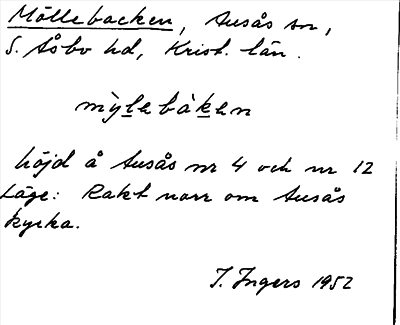 Möllebacken, Ausås sn,
S. Åsbo hd, Krist. län.
mỳlebàken
höjd å Ausås nr 4 och nr 12
Läge: Rakt norr om Ausås
kyrka.
I. Ingers 1952